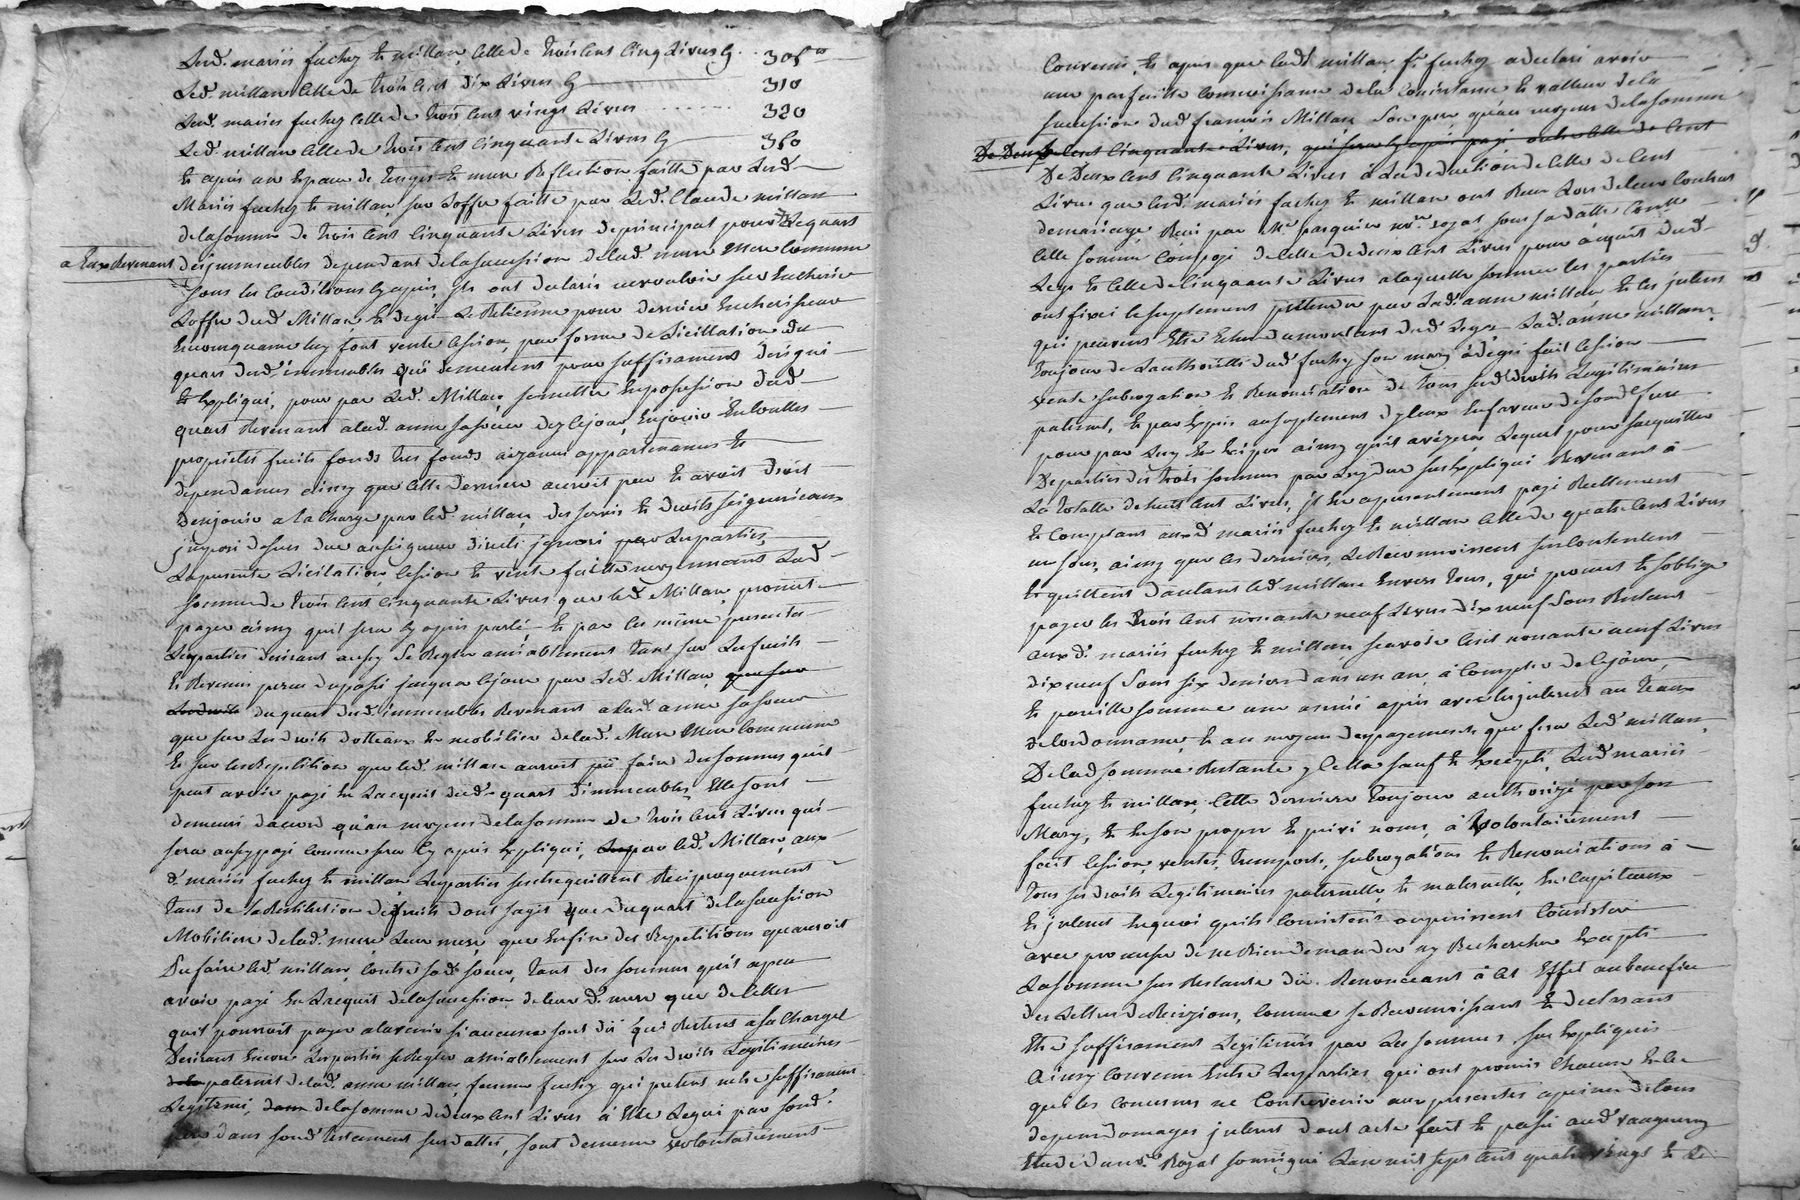 Lesd. mariés fuchey et millan, celle de trois Cent Cinq Livres Cy .. 305
Led. millan Celle de trois Cent dix Livres Cy 310
Lesd. mariés fuchey Celle de trois Cent vingt Livres 320
Led. millan Celle de trois Cent Cinquante Livres Cy 350
Et après un Espace de temps Et mure Reflection faitte par Lesd.
Mariés fuchey Et millan, sur Loffre faitte par Led. Claude millan
delasomme de trois Cent Cinquante Livres de principal pour Lequart
a Eux Revenant
des immeubles dependant delasucession de lad. mere commune
sous les Conditions Cy après, ils ont declarés
Loffre dud. Millan Et degré Le Retienne pour dernier Encherisseur
Enconsequence luy font vente Cession, par forme de Licitation du
quart dud. immeubles qui demeurent pour suffisament designé
Et Expliqué, pour par Led. Millan, semettre Enpossession dud.
quart Revenant alad. anne sasoeur dez ce jour, En jouir Entouttes
proprietés fruits fonds tres fonds aizances appartenances Et
dependances ainsy que Cette derniere auroit peu Et avoit droit
Denjouir alaCharge par led. millan, des servis Et droits seigneuriaux
imposé dessus due auseigneur direct ignoré par Lesparties,
Lapresente Licitation Cession Et vente faitte moyennant Lad.
somme de trois Cent Cinquante Livres que led. Millan, promet
payer ainsy quil sera Cy après parlé, Et par les même presentes
Lesparties desirant aussy se Regler amiablement tant sur Lesfruits
Et Revenus perçus dupassé jusqua cejour par Led. Millan, que sur
duquart dud. immeubles Revenant alad. anne sasoeur
que sur Les droits dotteaux Et mobilier delad. Mere commune
Et sur les Repetition que led. millan auroit pü faire dessommes quil
peut avoir payé En Lacquit dud. quart dimmeubles, Elle sont
demeuré dacord qu'au moyen delasomme de trois Cent Livres qui
sera aussy payé comme sera Cy après Expliqué, par led. Millan, aux
d. mariés fuchey Et millan Lesparties sentrequittent Reciproquement
tant de laRestitution desfruits dont sagit que duquart delasucession
Mobiliere delad. mere, que Enfin des Repetitions quauroit
Pu faire led. millan, Contre sad. soeur, tant des sommes quil a peu
avoir payé En Lacquit delasucession deleur d. mere que de Celles
quil pourroit payer alavenir si aucunes sont dü qui Restent asaCharge
Desirant Encore Lesparties seRegler amiablement sur Les droits Legitimaires
paternels delad. anne millan, femme fuchey qui pretent netre suffisament
Legitimé, delasomme dedeux Cent Livres à Elle Legué par sond.
pere dans sond. testament susdatté, sont demeuré volontairement
Convenus, Et après que lad. millan fe. fuchey a declaré avoir
une parfaitte Connoissance dela Consistance Et valleur dela
sucession dud. françois Millan Son pere qu'au moyen delasomme
De Deux Cent Cinquante Livres, qui sera Cy après payé, outre Celle de Cent
De Deux Cent Cinquante Livres à La deduction de Celle de Cent
Livres que lesd. mariés fuchey Et millan ont Reçu Lors deleur Contrat
demariage Reçu par Me. pasquier nore. royal, sous sa datte Controlé
Celle somme Composé de Celle dedeux Cent Livres pour acquit dud.
Legs Et Celle de Cinquante Livres alaquelle somme les parties
ont fixé le suplement pretendu par Lad. anne millan Et les interets
qui peuvent Etre Echus dumontant dud. Legs Lad. anne millan,
toujours de Lauthorité dud. fuchey son mary à degré fait Cession
vente subrogation Et Renonciation de tous sesd. droits Legitimaires
paternels, Et par Exprès ausuplement diceux Enfaveur desond. frere
pour par Luy En Exiger ainsy quil avizera, Lequel pour sacquitter
Departies des trois sommes par Luy due sus Expliqué Revenant à
La totalle de neuf Cent Livres, il En a presentement payé Reellement
Et Comptant auxd. mariés fuchey Et millan Celle de quatre Cent Livres
un sous, ainsy que les derniers Le Reconnoissent sen Contentent
Et quittent dautant led. millan Envers tous, qui promet Et soblige
payer les trois Cent nonante neuf Livres dix neuf Sous Restant
aux d. mariés fuchey Et millan scavoir Cent nonante neuf Livres
dix neuf Sous six deniers dans un an, à Compter de ce jour,
Et pareille somme une année après avec les interets au teaux
delordonnance, Et au moyen despayements que fera Led. millan,
De lad somme Restante, ycelle sauf Et Excepté, Lesd. mariés
fuchey Et millan, Cette derniere toujours authorizé par son
Mary, Et Enson propre Et privé nom, à volontairement
fait Cession, ventes, transports, subrogations Et Renonciations à
tous ses droits Legitimaires paternelle, Et maternelle, En Capiteaux
Et interets Enquoi quils Consistent oupuissent Consister
avec promesse de ne Rien demander ny Rechercher Excepté
Lasomme sus Restante dü. Renonceant à Cet Effet aubenefice
des Lettres de Rescizions, Comme se Reconnoissant Et declarant
Etre suffisament Legitimés par Les sommes sus Expliqués
Ainsy Convenu Entre Lesparties qui ont promis chacun Enlce
quil les Concernes ne Contrevenir aux presentes apeine detous
depens domages interets dont acte fait Et passé aud. vaugneray
Etude dud. nore. Royal soussigné Lan mil sept Cent quatrevings Et Le